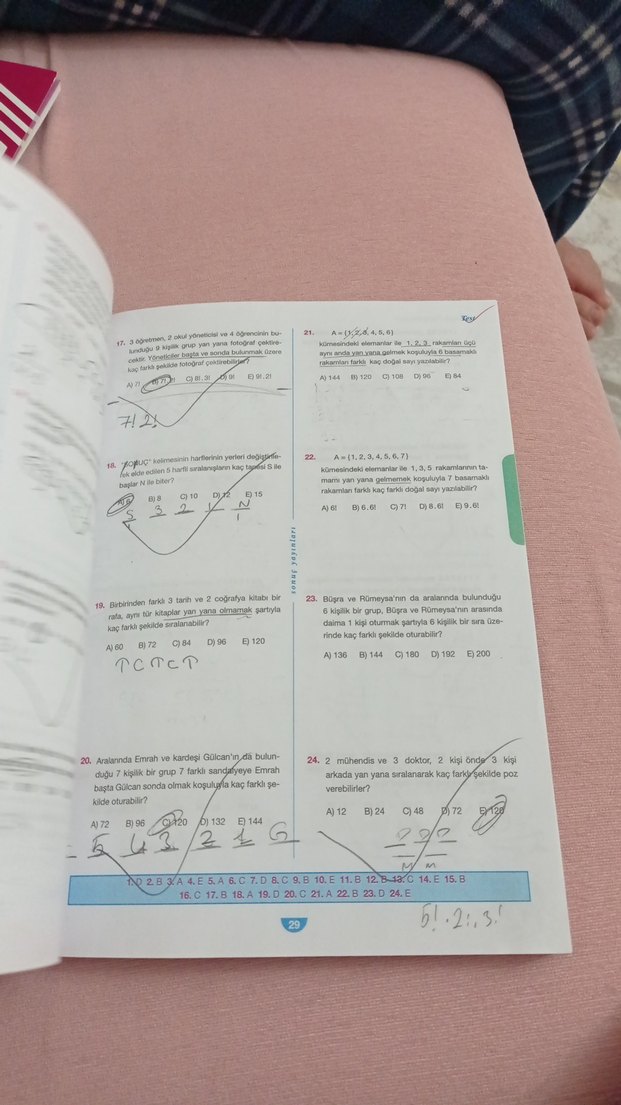 Test
17. 3 öğretmen, 2 okul yöneticisi ve 4 öğrencinin bu-
lunduğu 9 kişilik grup yan yana fotoğraf çektire-
cektir. Yöneticiler başta ve sonda bulunmak üzere
kaç farklı şekilde fotoğraf çektirebilirler?
A) 7! B) 7! C) 8!.3! D) 9! E) 9!.2!
7! 2!
18. "SONUÇ" kelimesinin harflerinin yerleri değiştirile-
rek elde edilen 5 harfli sıralanışların kaç tanesi S ile
başlar N ile biter?
A) 6 B) 8 C) 10 D) 12 E) 15
S 3 2 1 N
1 1
19. Birbirinden farklı 3 tarih ve 2 coğrafya kitabı bir
rafa, aynı tür kitaplar yan yana olmamak şartıyla
kaç farklı şekilde sıralanabilir?
A) 60 B) 72 C) 84 D) 96 E) 120
T C T C T
20. Aralarında Emrah ve kardeşi Gülcan'ın da bulun-
duğu 7 kişilik bir grup 7 farklı sandalyeye Emrah
başta Gülcan sonda olmak koşuluyla kaç farklı şe-
kilde oturabilir?
A) 72 B) 96 C) 120 D) 132 E) 144
5 4 3 2 1 G
sonuç yayınları
21. A = {1, 2, 3, 4, 5, 6}
kümesindeki elemanlar ile 1, 2, 3 rakamları üçü
aynı anda yan yana gelmek koşuluyla 6 basamaklı
rakamları farklı kaç doğal sayı yazılabilir?
A) 144 B) 120 C) 108 D) 96 E) 84
22. A = {1, 2, 3, 4, 5, 6, 7}
kümesindeki elemanlar ile 1, 3, 5 rakamlarının ta-
mamı yan yana gelmemek koşuluyla 7 basamaklı
rakamları farklı kaç farklı doğal sayı yazılabilir?
A) 6! B) 6.6! C) 7! D) 8.6! E) 9.6!
23. Büşra ve Rümeysa'nın da aralarında bulunduğu
6 kişilik bir grup, Büşra ve Rümeysa'nın arasında
daima 1 kişi oturmak şartıyla 6 kişilik bir sıra üze-
rinde kaç farklı şekilde oturabilir?
A) 136 B) 144 C) 180 D) 192 E) 200
24. 2 mühendis ve 3 doktor, 2 kişi önde 3 kişi
arkada yan yana sıralanarak kaç farklı şekilde poz
verebilirler?
A) 12 B) 24 C) 48 D) 72 E) 120
M M
1. D 2. B 3. A 4. E 5. A 6. C 7. D 8. C 9. B 10. E 11. B 12. B 13. C 14. E 15. B
16. C 17. B 18. A 19. D 20. C 21. A 22. B 23. D 24. E
5! . 2! . 3!
29